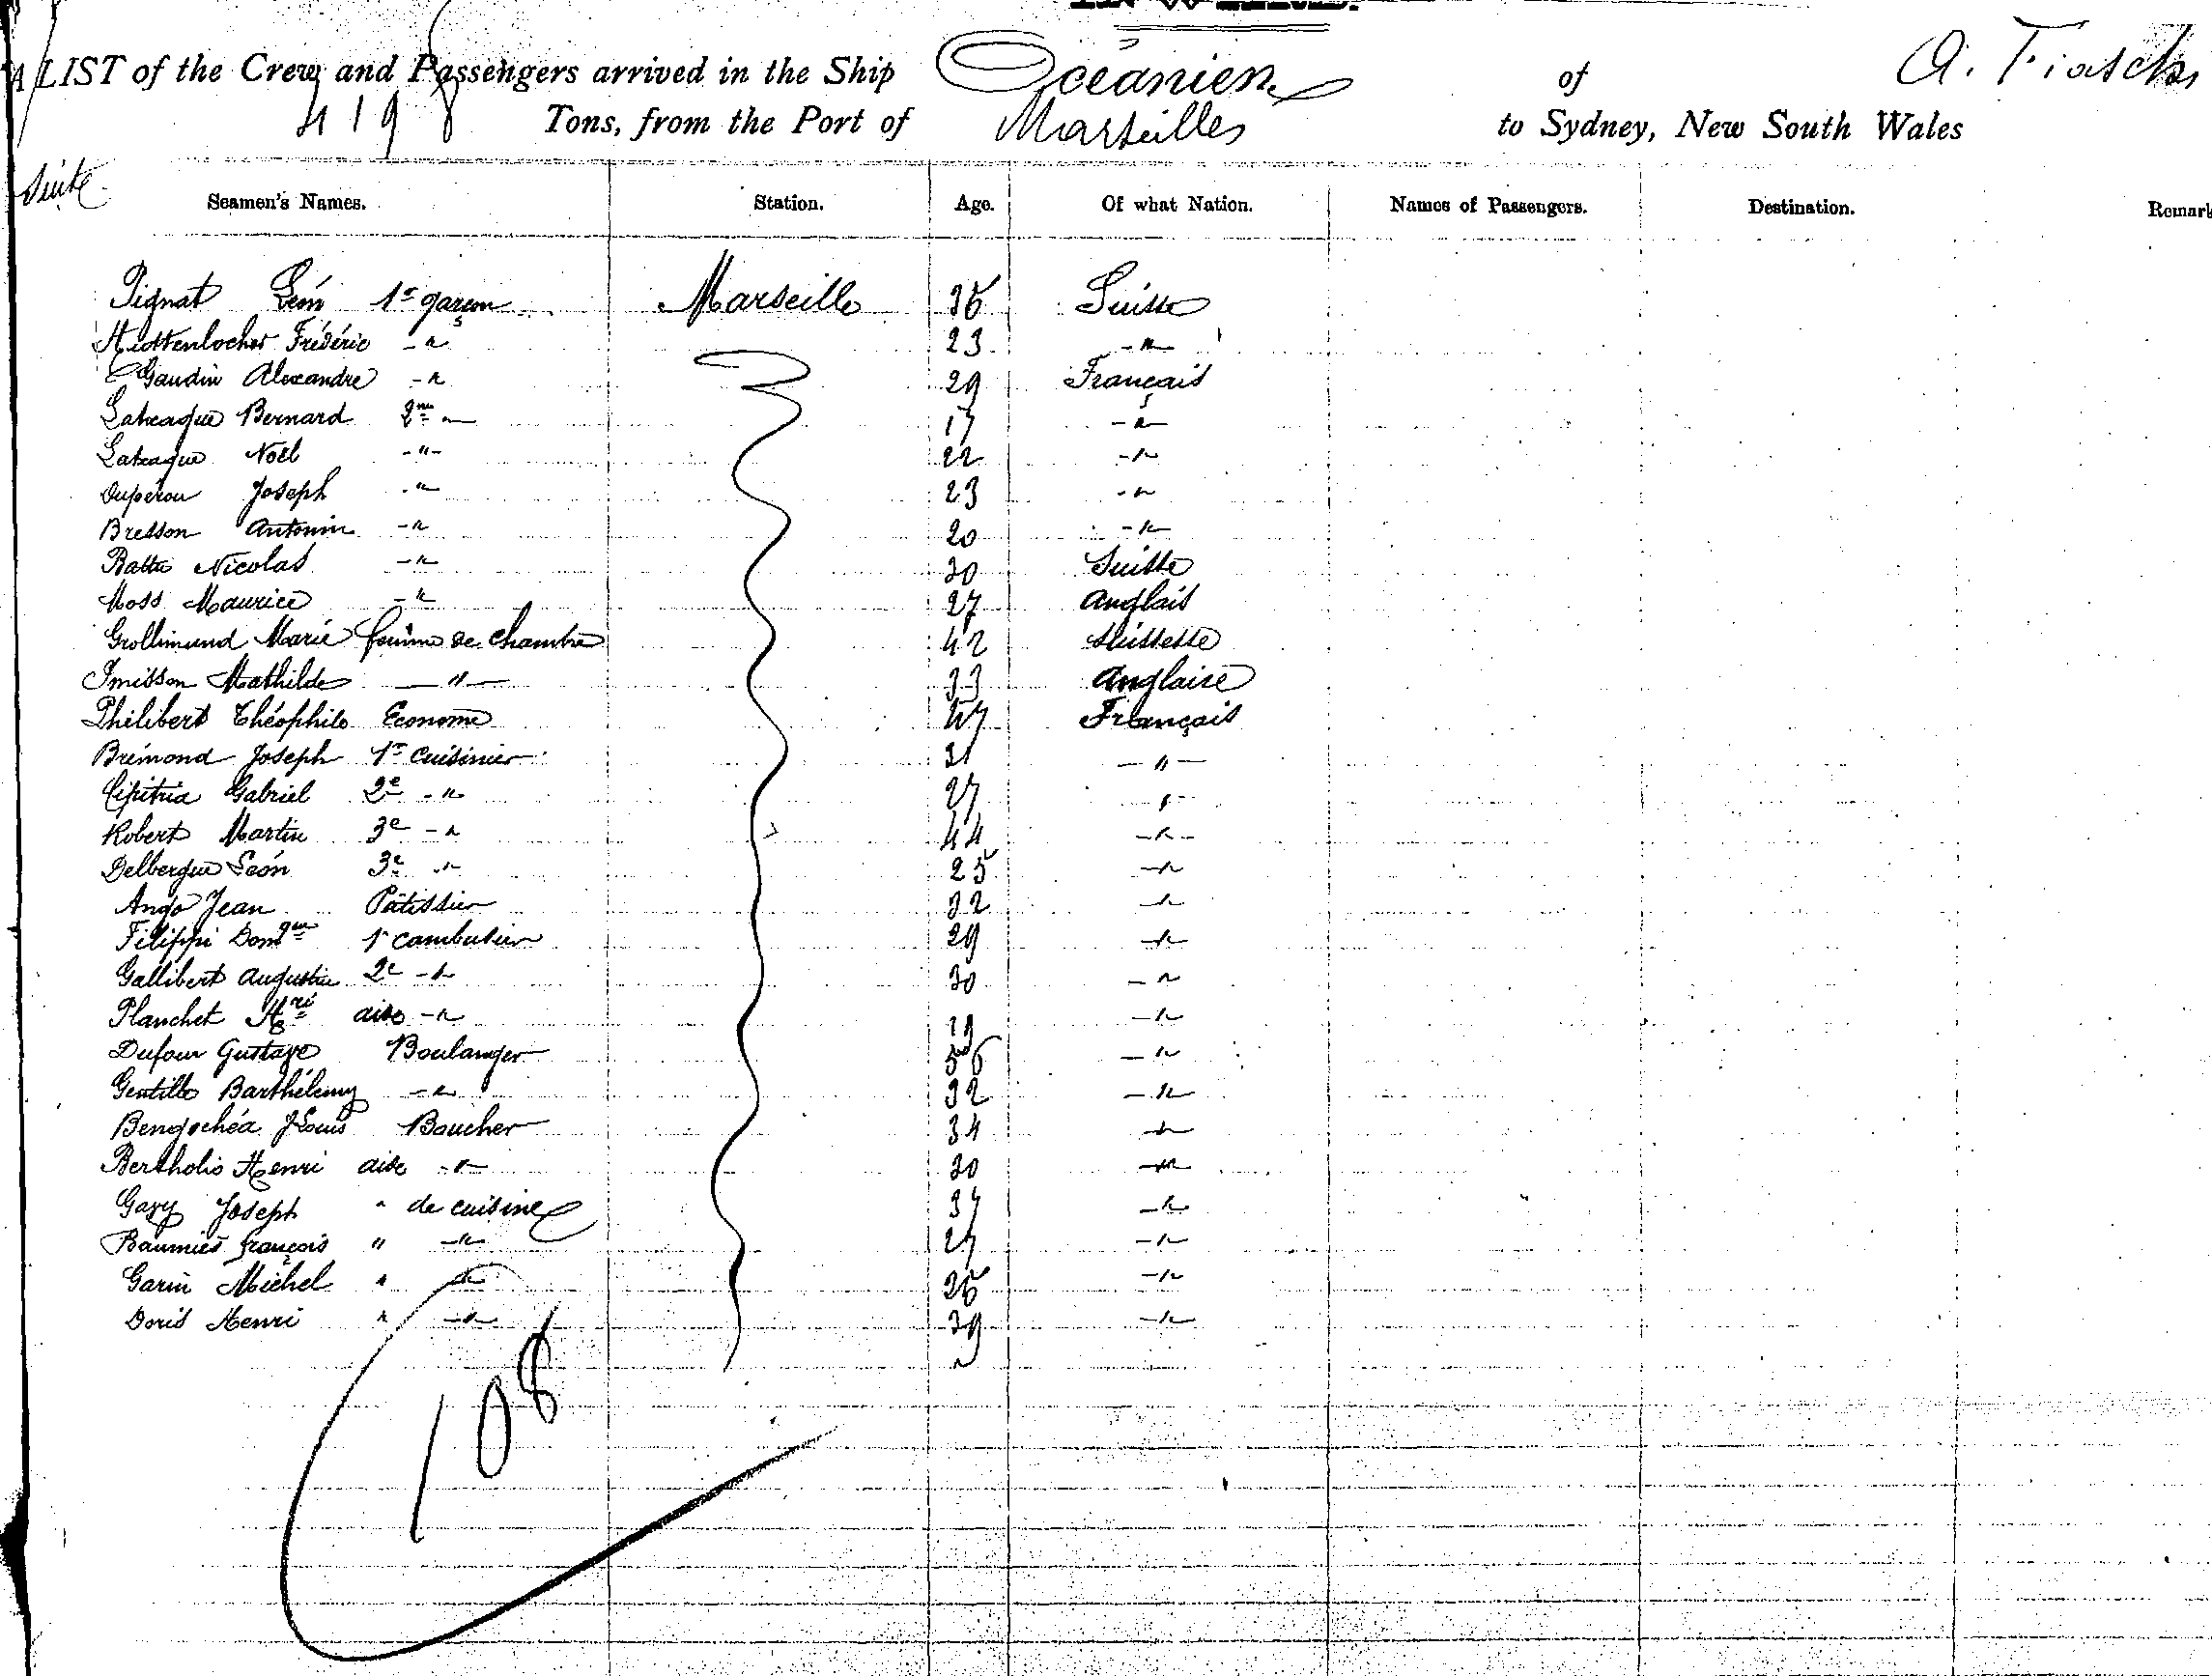 A LIST of the Crew and Passengers arrived in the Ship Océanien of A. Fiaschi
4198 Tons, from the Port of Marseilles to Sydney, New South Wales
Suite
Seamen's Names. Station. Age. Of what Nation. Names of Passengers. Destination. Remark
Pignat Léon 1er garçon Marseille 36 Suisse
Huttenlocher Frédéric -"- 23 -"-
Gaudin Alexandre -"- 29 Français
Latxague Bernard 2me -"- 17 -"-
Latxague Noël -"- 22 -"-
Duperou Joseph -"- 23 -"-
Bresson Antonin -"- 20 -"-
Nicolas -"- 30 Suisse
Moss Maurice -"- 27 Anglais
Grollimund Marie femme de chambre 42 Suissesse
Imisson Mathilde -"- 33 Anglaise
Philibert Théophile Econome 47 Français
Brémond Joseph 1er Cuisinier 31 -"-
Cipitria Gabriel 2e -"- 27 -"-
Robert Martin 3e -"- 44 -"-
Delbergue Léon 3e -"- 25 -"-
Ango Jean Pâtissier 32 -"-
Filippi Domque 1r Cambusier 29 -"-
Gallibert Augustin 2e -"- 30 -"-
Planchet Hri aide -"- -"-
Dufour Gustave Boulanger 36 -"-
Gentille Barthélemy -"- 32 -"-
Bengochéa JLouis Boucher 34 -"-
Bertholio Henri aide -"- 30 -"-
Gary Joseph " de cuisine 37 -"-
Baumies françois " -"- 27 -"-
Garin Michel " -"- 26 -"-
Doris Henri " -"- 39 -"-
108